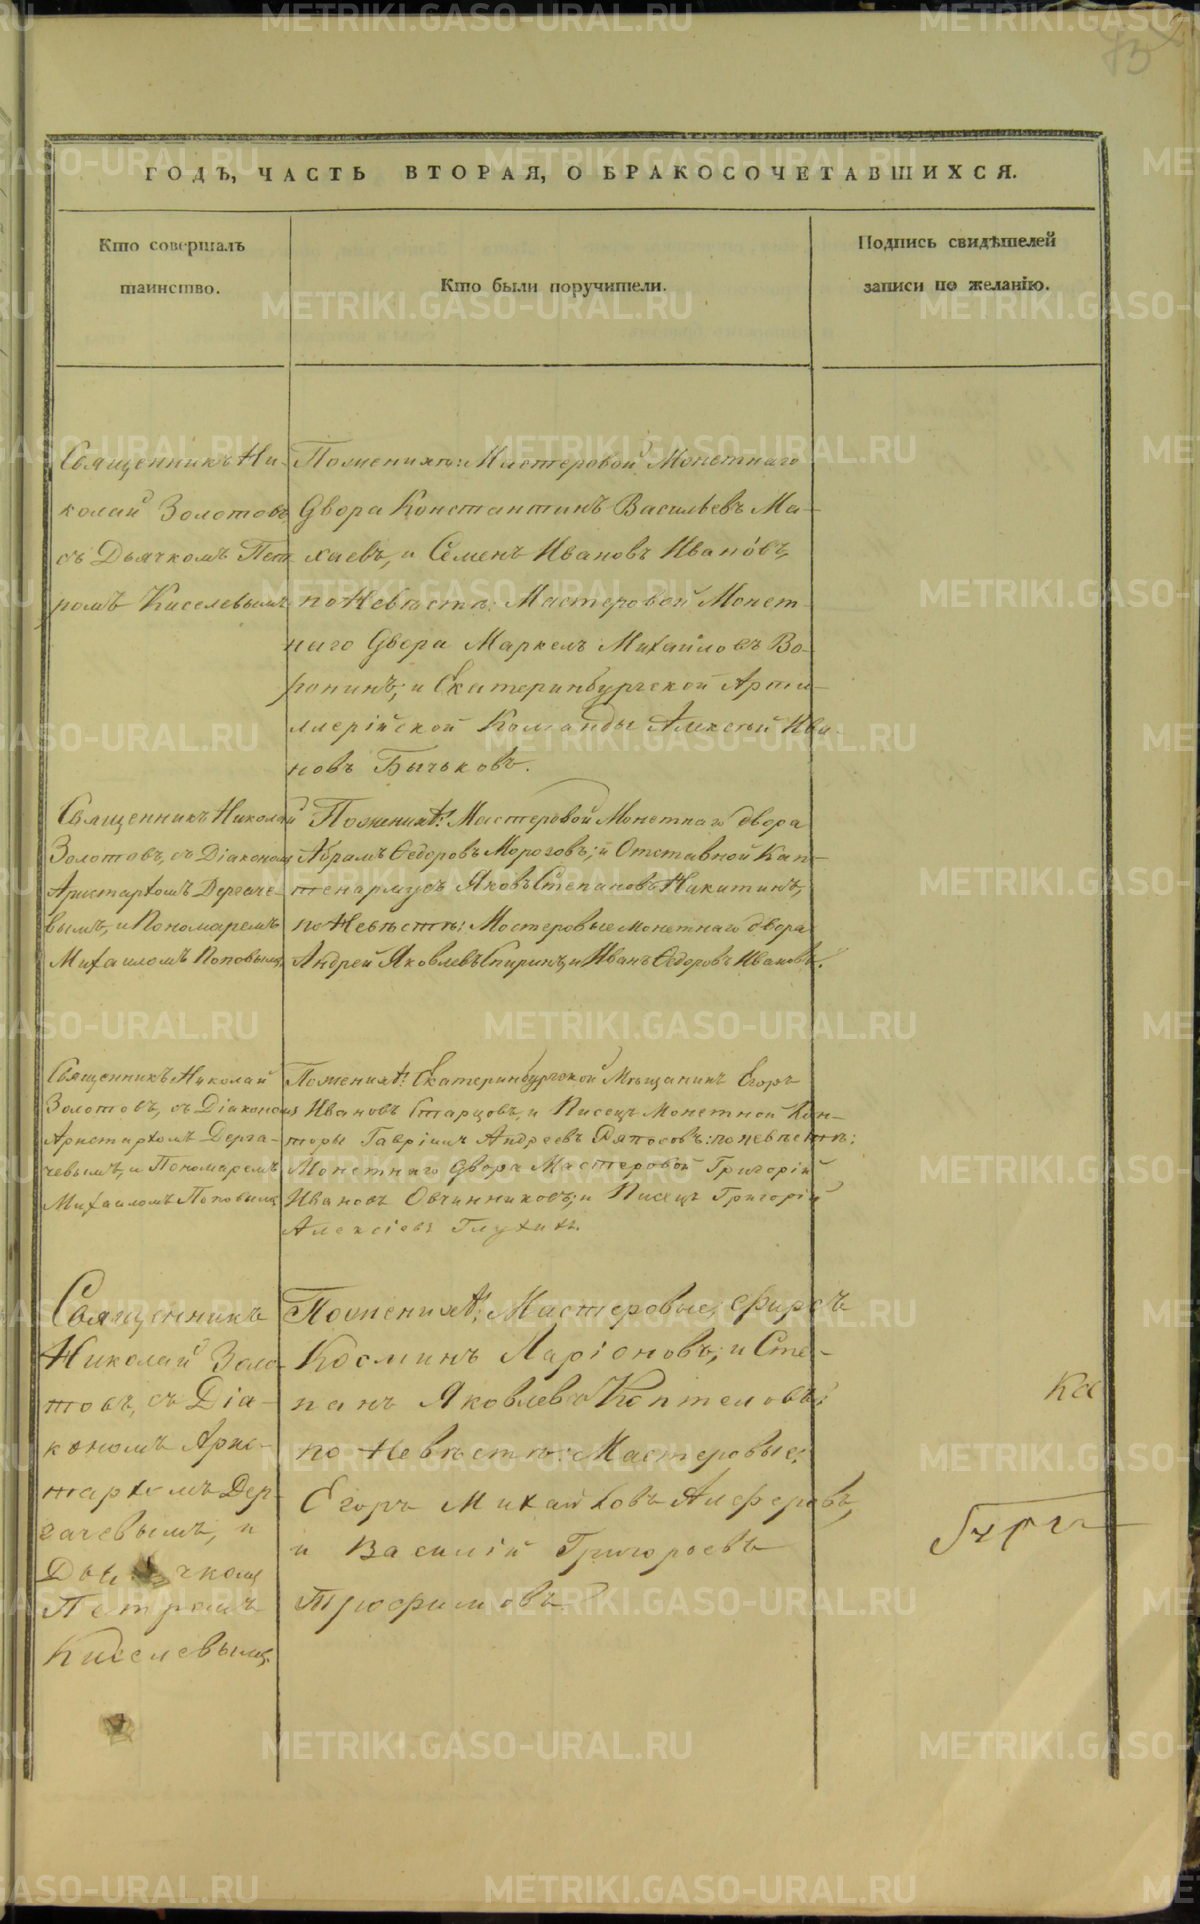 73
ГОДЪ, ЧАСТЬ ВТОРАЯ, О БРАКОСОЧЕТАВШИХСЯ.
Кто совершалъ
таинство.
Кто были поручители.
Подпись свидѣтелей
записи по желанію.
Священникъ Ни-
колай Золотовъ
съ Дьячкомъ Пет
ромъ Киселевымъ
По женихѣ: Мастеровой Монетнаго
Двора Константинъ Васильевъ Ма-
хаевъ, и Семенъ Ивановъ Ивановъ,
по Невѣстѣ: Мастеровой Монет-
наго Двора Маркелъ Михайловъ Во-
ронинъ; и Екатеринбургской Арти-
ллерійской Команды Алексѣй Ива-
новъ Бычьковъ.
Священникъ Николай
Золотовъ, съ Діакономъ
Аристархомъ Дергаче-
вымъ, и Пономаремъ
Михаиломъ Поповымъ.
По женихѣ: Мастеровой Монетнаго двора
Абрамъ Ѳедоровъ Морозовъ; и Отставной Кап-
тенармусъ Яковъ Степановъ Никитинъ,
по Невѣстѣ: Мастеровые монетнаго двора
Андрей Яковлевъ Спиринъ, и Иванъ Ѳедоровъ Ивановъ.
Священникъ Николай
Золотовъ, съ Діакономъ
Аристархомъ Дерга-
чевымъ, и Пономаремъ
Михаиломъ Поповымъ
По женихѣ: Екатеринбургской Мѣщанинъ Егоръ
Ивановъ Старцовъ, и Писецъ Монетной Кон-
торы Гавріилъ Андреевъ Ряпосовъ: по невѣстѣ:
Монетнаго Двора Мастеровой Григорій
Ивановъ Овчинниковъ, и Писецъ Григорій
Алексіевъ Глухихъ.
Священникъ
Николай Золо-
товъ, съ Діа-
кономъ Арис-
тархомъ Дер-
гачевымъ, и
Дьячкомъ
Петромъ
Киселевымъ.
По женихѣ: Мастеровые; Фирсъ
Косминъ Ларіоновъ; и Сте-
панъ Яковлевъ Коптеловъ:
по Невѣстѣ: Мастеровые;
Егоръ Михайловъ Алферовъ,
и Василій Григорьевъ
Трофимовъ.
METRIKI.GASO-URAL.RU